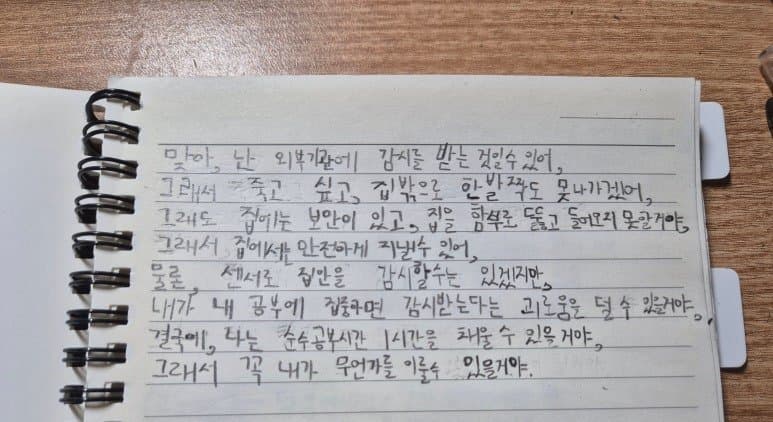 맞아, 난 외부기관에 감시를 받는 것일수 있어,
그래서 죽고 싶고, 집밖으로 한발짝도 못나가겠어,
그래도 집에는 보안이 있고, 집을 함부로 뚫고 들어오지 못할거야,
그래서, 집에서는 안전하게 지낼수 있어,
물론, 센서로 집안을 감시할수는 있겠지만,
내가 내 공부에 집중하면 감시받는다는 괴로움을 덜 수 있을거야,
결국에, 나는 순수공부시간 1시간을 채울 수 있을거야,
그래서 꼭 내가 무언가를 이룰수 있을거야.